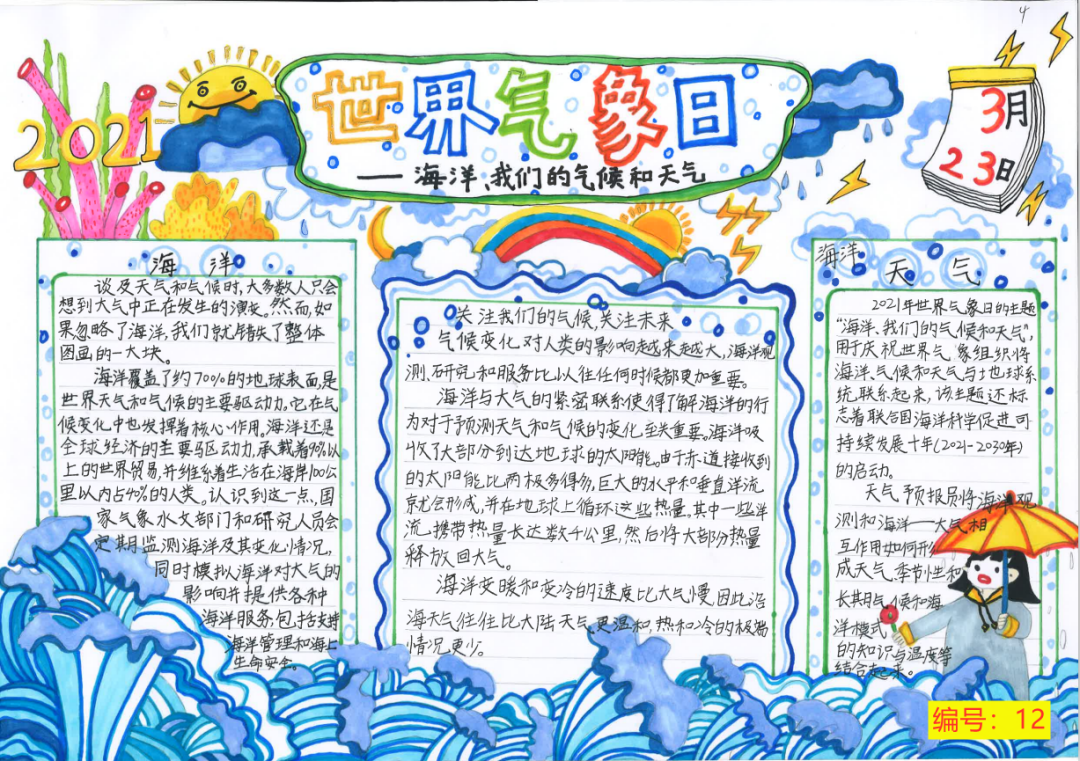 4
2021
世界气象日
——海洋、我们的气候和天气
3月
23日
海洋
谈及天气和气候时,大多数人只会
想到大气中正在发生的演变。然而,如
果忽略了海洋,我们就错失了整体
图画的一大块。
海洋覆盖了约70%的地球表面,是
世界天气和气候的主要驱动力。它在气
候变化中也发挥着核心作用。海洋还是
全球经济的主要驱动力,承载着90%以
上的世界贸易,并维系着生活在海岸100公
里以内占40%的人类。认识到这一点、国
家气象水文部门和研究人员会
定期监测海洋及其变化情况,
同时模拟海洋对大气的
影响并提供各种
海洋服务,包括支持
海洋管理和海上
生命安全。
关注我们的气候,关注未来
气候变化对人类的影响越来越大,海洋观
测、研究和服务比以往任何时候都更加重要。
海洋与大气的紧密联系使得了解海洋的行
为对于预测天气和气候的变化至关重要。海洋吸
收了大部分到达地球的太阳能。由于赤道接收到
的太阳能比两极多得多,巨大的水平和垂直洋流
就会形成,并在地球上循环这些热量。其中一些洋
流携带热量长达数千公里,然后将大部分热量
释放回大气。
海洋变暖和变冷的速度比大气慢,因此沿
海天气往往比大陆天气更温和,热和冷的极端
情况更少。
海洋
天气
2021年世界气象日的主题
“海洋、我们的气候和天气”,
用于庆祝世界气象组织将
海洋、气候和天气与地球系
统联系起来,该主题还标
志着联合国海洋科学促进可
持续发展十年(2021-2030年)
的启动。
天气预报员将海洋观
测和海洋——大气相
互作用如何形
成天气、季节性和
长期气候和海
洋模式
的知识与温度等
结合起来。
编号:12